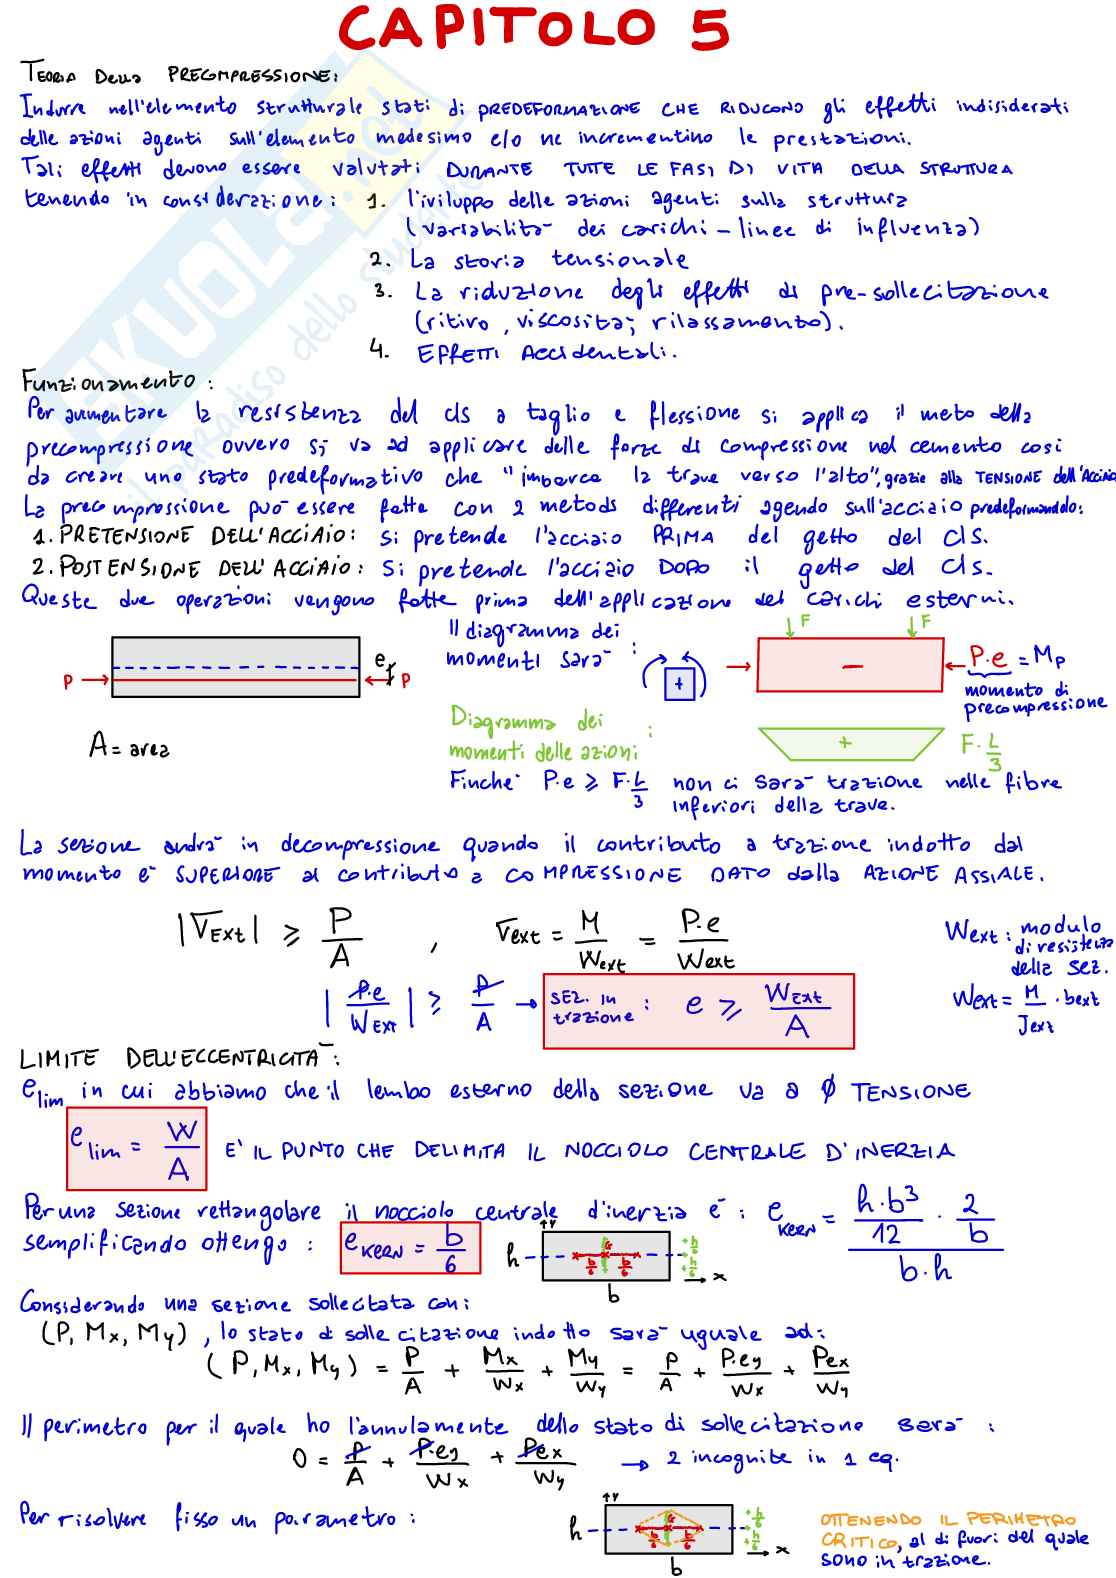 CAPITOLO 5
TEORIA DELLA PRECOMPRESSIONE:
Indurre nell'elemento strutturale stati di PREDEFORMAZIONE CHE RIDUCONO gli effetti indisiderati
delle azioni agenti sull'elemento medesimo e/o ne incrementino le prestazioni.
Tali effetti devono essere valutati DURANTE TUTTE LE FASI DI VITA DELLA STRUTTURA
tenendo in considerazione: 1. l'iviluppo delle azioni agenti sulla struttura
(variabilità dei carichi - linee di influenza)
2. La storia tensionale
3. La riduzione degli effetti di pre-sollecitazione
(ritiro, viscosità, rilassamento).
4. EFFETTI Accidentali.
Funzionamento:
Per aumentare la resistenza del cls a taglio e flessione si applica il meto della
precompressione ovvero si va ad applicare delle forze di compressione nel cemento così
da creare uno stato predeformativo che "imbarca la trave verso l'alto", grazie alla TENSIONE dell'Acciaio
La precompressione può essere fatta con 2 metods differenti agendo sull'acciaio predeformandolo:
1. PRETENSIONE DELL'ACCIAIO: Si pretende l'acciaio PRIMA del getto del cls.
2. POSTENSIONE DELL'ACCIAIO: Si pretende l'acciaio DOPO il getto del cls.
Queste due operazioni vengono fatte prima dell'applicazione dei carichi esterni.
P e P
A = area
Il diagramma dei
momenti sarà :
+
F F
− P·e = Mp
momento di
precompressione
Diagramma dei
momenti delle azioni :
+ F·L/3
Finchè P·e ⩾ F·L/3 non ci sarà trazione nelle fibre
inferiori della trave.
La sezione andrà in decompressione quando il contributo a trazione indotto dal
momento è SUPERIORE al contributo a COMPRESSIONE DATO dalla AZIONE ASSIALE.
|σExt| ⩾ P/A , σext = M/Wext = P·e/Wext
Wext: modulo
di resistenza
della sez.
|P·e/WExt| ⩾ P/A → SEZ. in trazione: e ⩾ WExt/A
Wext = M/Jext · bext
LIMITE DELL'ECCENTRICITÀ:
elim in cui abbiamo che il lembo esterno della sezione va a Ø TENSIONE
elim = W/A E' IL PUNTO CHE DELIMITA IL NOCCIOLO CENTRALE D'INERZIA
Per una sezione rettangolare il nocciolo centrale d'inerzia è : eKERN = (h·b³/12 · 2/b)/(b·h)
semplificando ottengo : eKERN = b/6
h y G b/6 b/6 +h/6 +h/6 x
b
Considerando una sezione sollecitata con:
(P, Mx, My), lo stato di sollecitazione indotto sarà uguale ad:
(P, Mx, My) = P/A + Mx/Wx + My/Wy = P/A + P·ey/Wx + Pex/Wy
Il perimetro per il quale ho l'annulamente dello stato di sollecitazione sarà :
0 = P/A + P·ey/Wx + Pex/Wy → 2 incognite in 1 eq.
Per risolvere fisso un parametro :
h y G b/6 b/6 +h/6 +h/6 x
b
OTTENENDO IL PERIMETRO
CRITICO, al di fuori del quale
sono in trazione.
SKUOLA.net
il paradiso dello studente